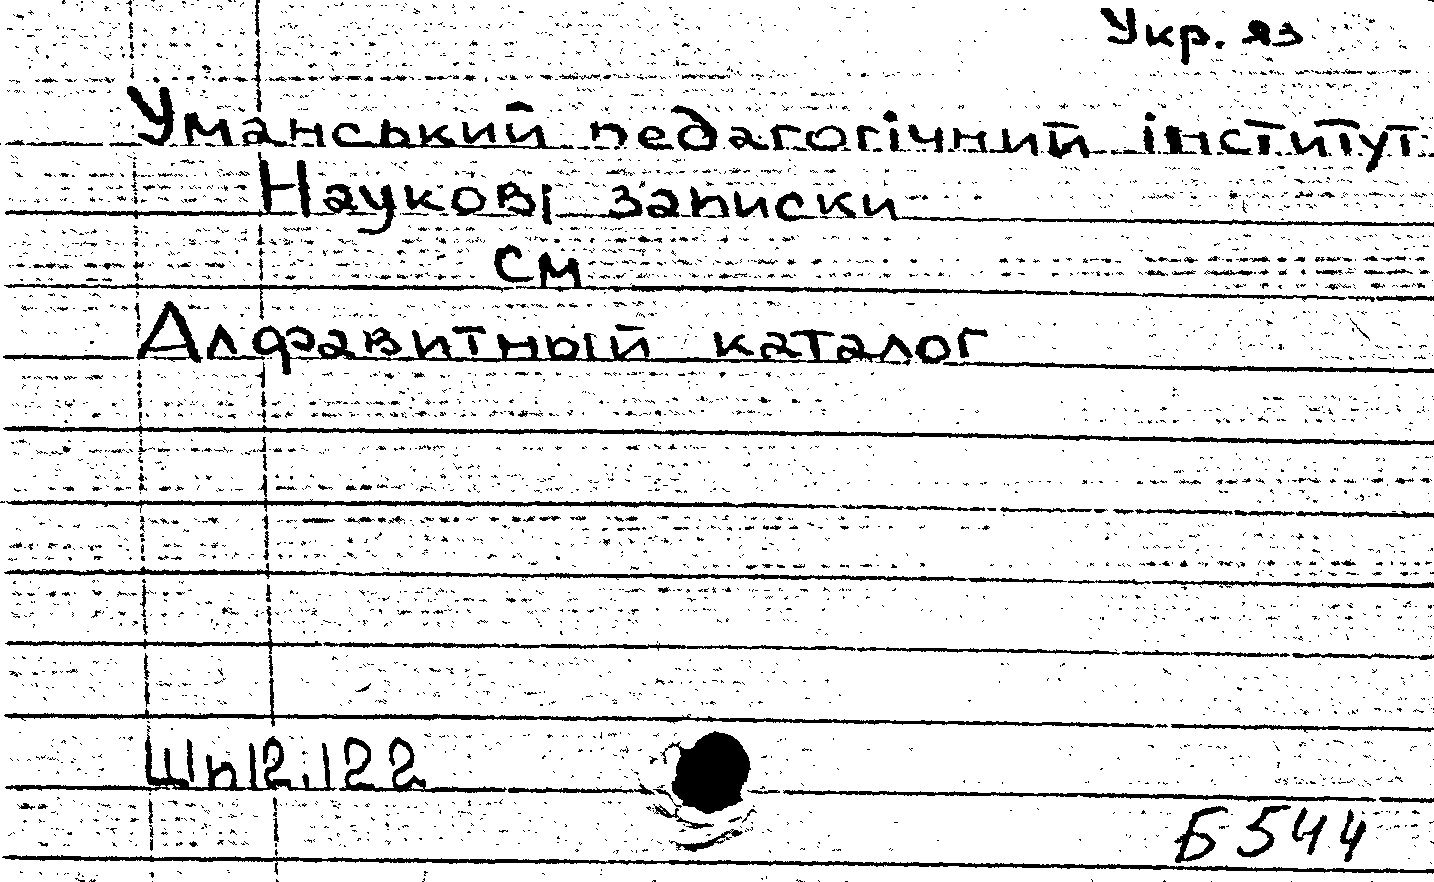 Укр. яз
Уманський педагогічний інститут
Наукові записки
см
Алфавитный каталог
Шп12.122
Б544